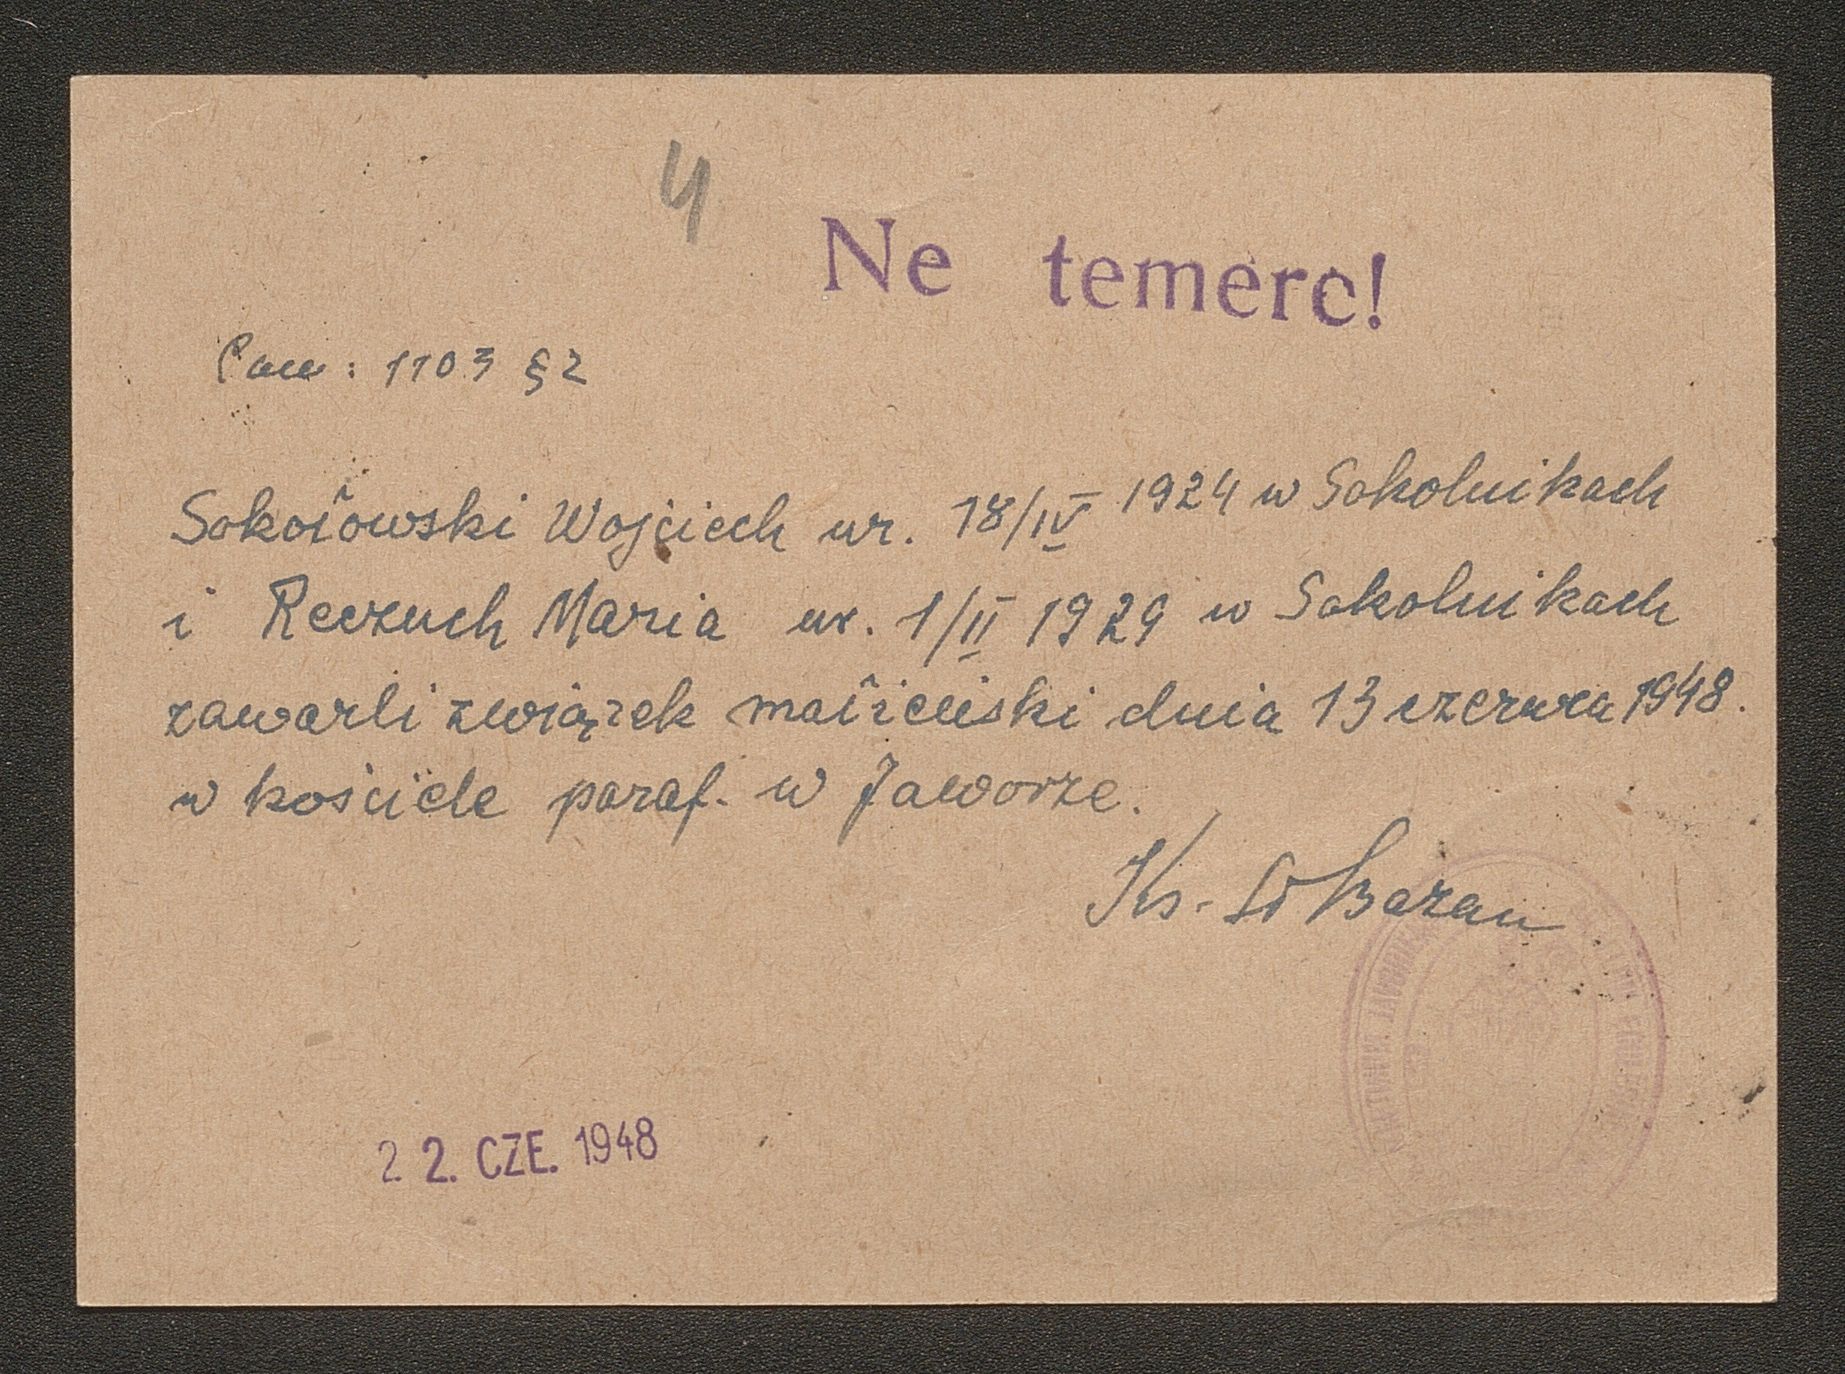 4
Ne temere!
Can: 1103 § 2
Sokołowski Wojciech ur. 18/IV 1924 w Sokolnikach
i Reczuch Maria ur. 1/II 1929 w Sokolnikach
zawarli związek małżeński dnia 13 czerwca 1948.
w kościele paraf. w Jaworze.
Ks. Baran
22. CZE. 1948